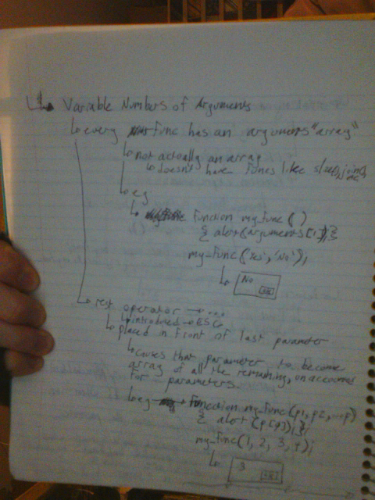 ↳ Variable Numbers of Arguments
↳ every func has an arguments "array"
↳ not actually an array
↳ doesn't have funcs like
↳ eg
↳ function my_func()
{ alert(arguments[1]);}
my_func('Yes', 'No');
↳ No
OK
↳ rest operator → ...
↳ introduced in ES6
↳ placed in front of last parameter
↳ causes that parameter to become
array of all the remaining, unaccounted
for parameters
↳ eg → function my_func(p1, p2, ...p)
{ alert(p[0]);}
my_func(1, 2, 3, 4);
↳ 3
OK